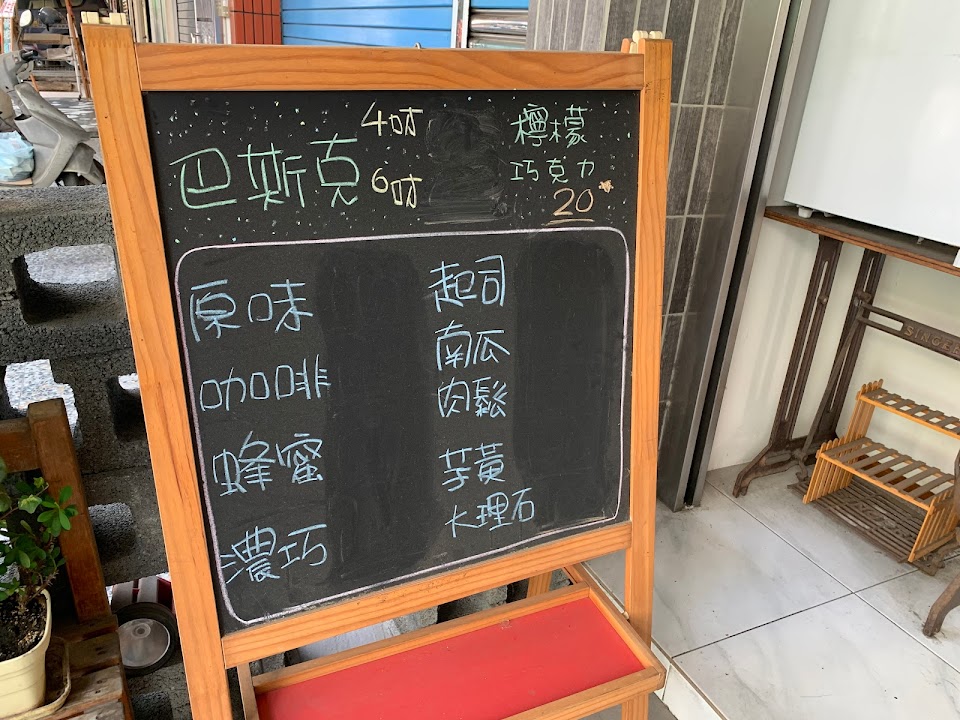 巴斯克
4吋
6吋
檸檬
巧克力
20
原味
咖啡
蜂蜜
濃巧
起司
南瓜
肉鬆
芋黃
大理石
SINGER